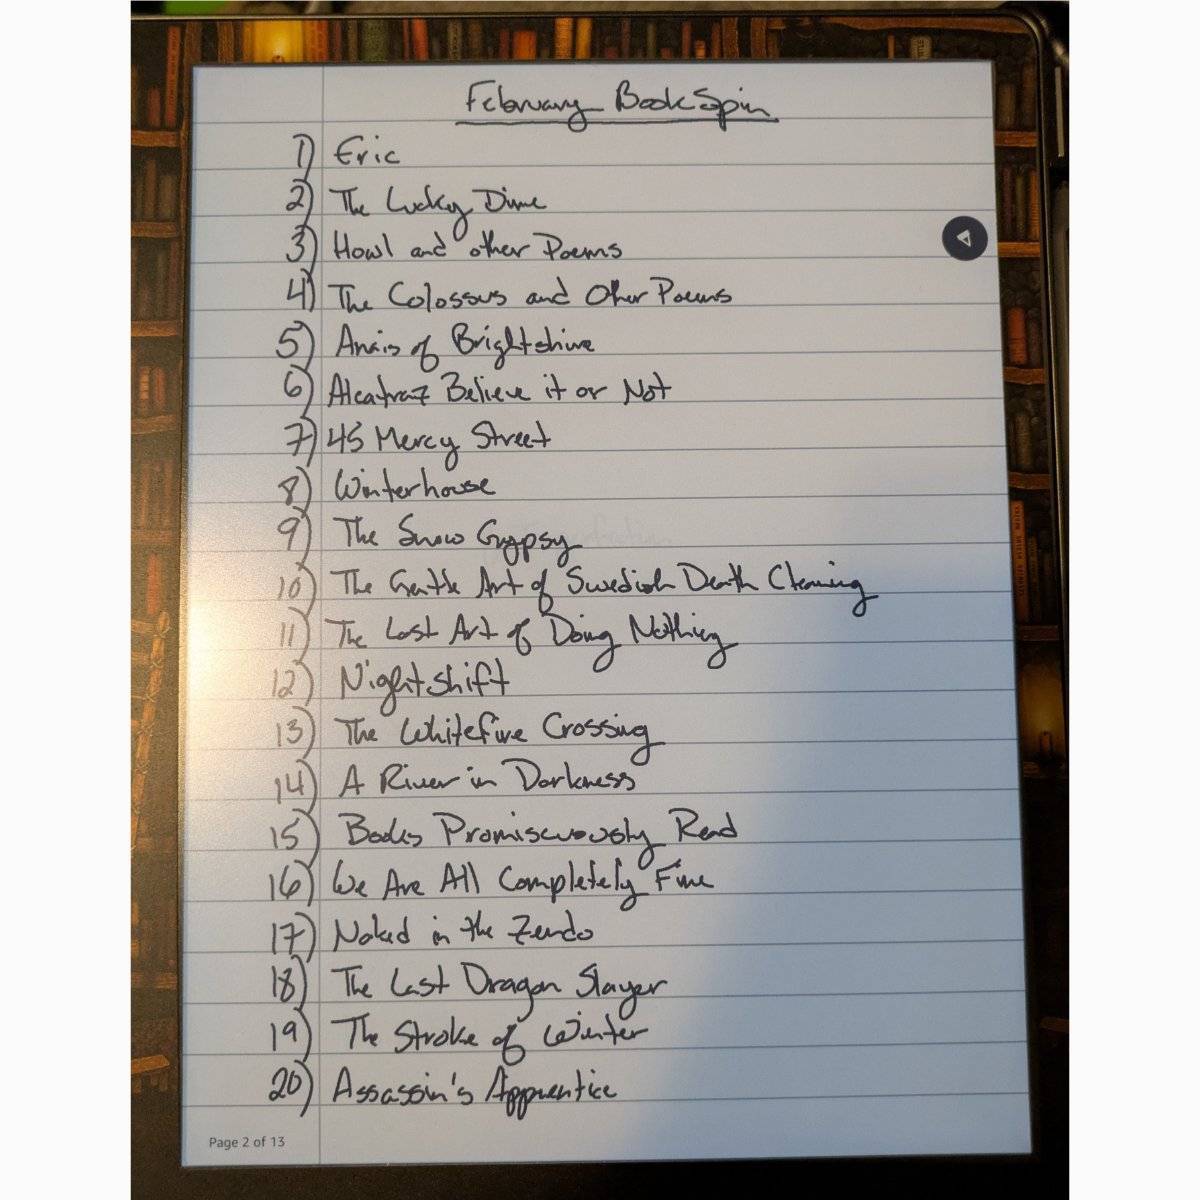 February BookSpin
1) Eric
2) The Lucky Dime
3) Howl and other Poems
4) The Colossus and Other Poems
5) Anais of Brightshire
6) Alcatraz Believe it or Not
7) 45 Mercy Street
8) Winterhouse
9) The Snow Gypsy
10) The Gentle Art of Swedish Death Cleaning
11) The Lost Art of Doing Nothing
12) Nightshift
13) The Whitefire Crossing
14) A River in Darkness
15) Books Promiscuously Read
16) We Are All Completely Fine
17) Naked in the Zendo
18) The Last Dragon Slayer
19) The Stroke of Winter
20) Assassin's Apprentice
Page 2 of 13